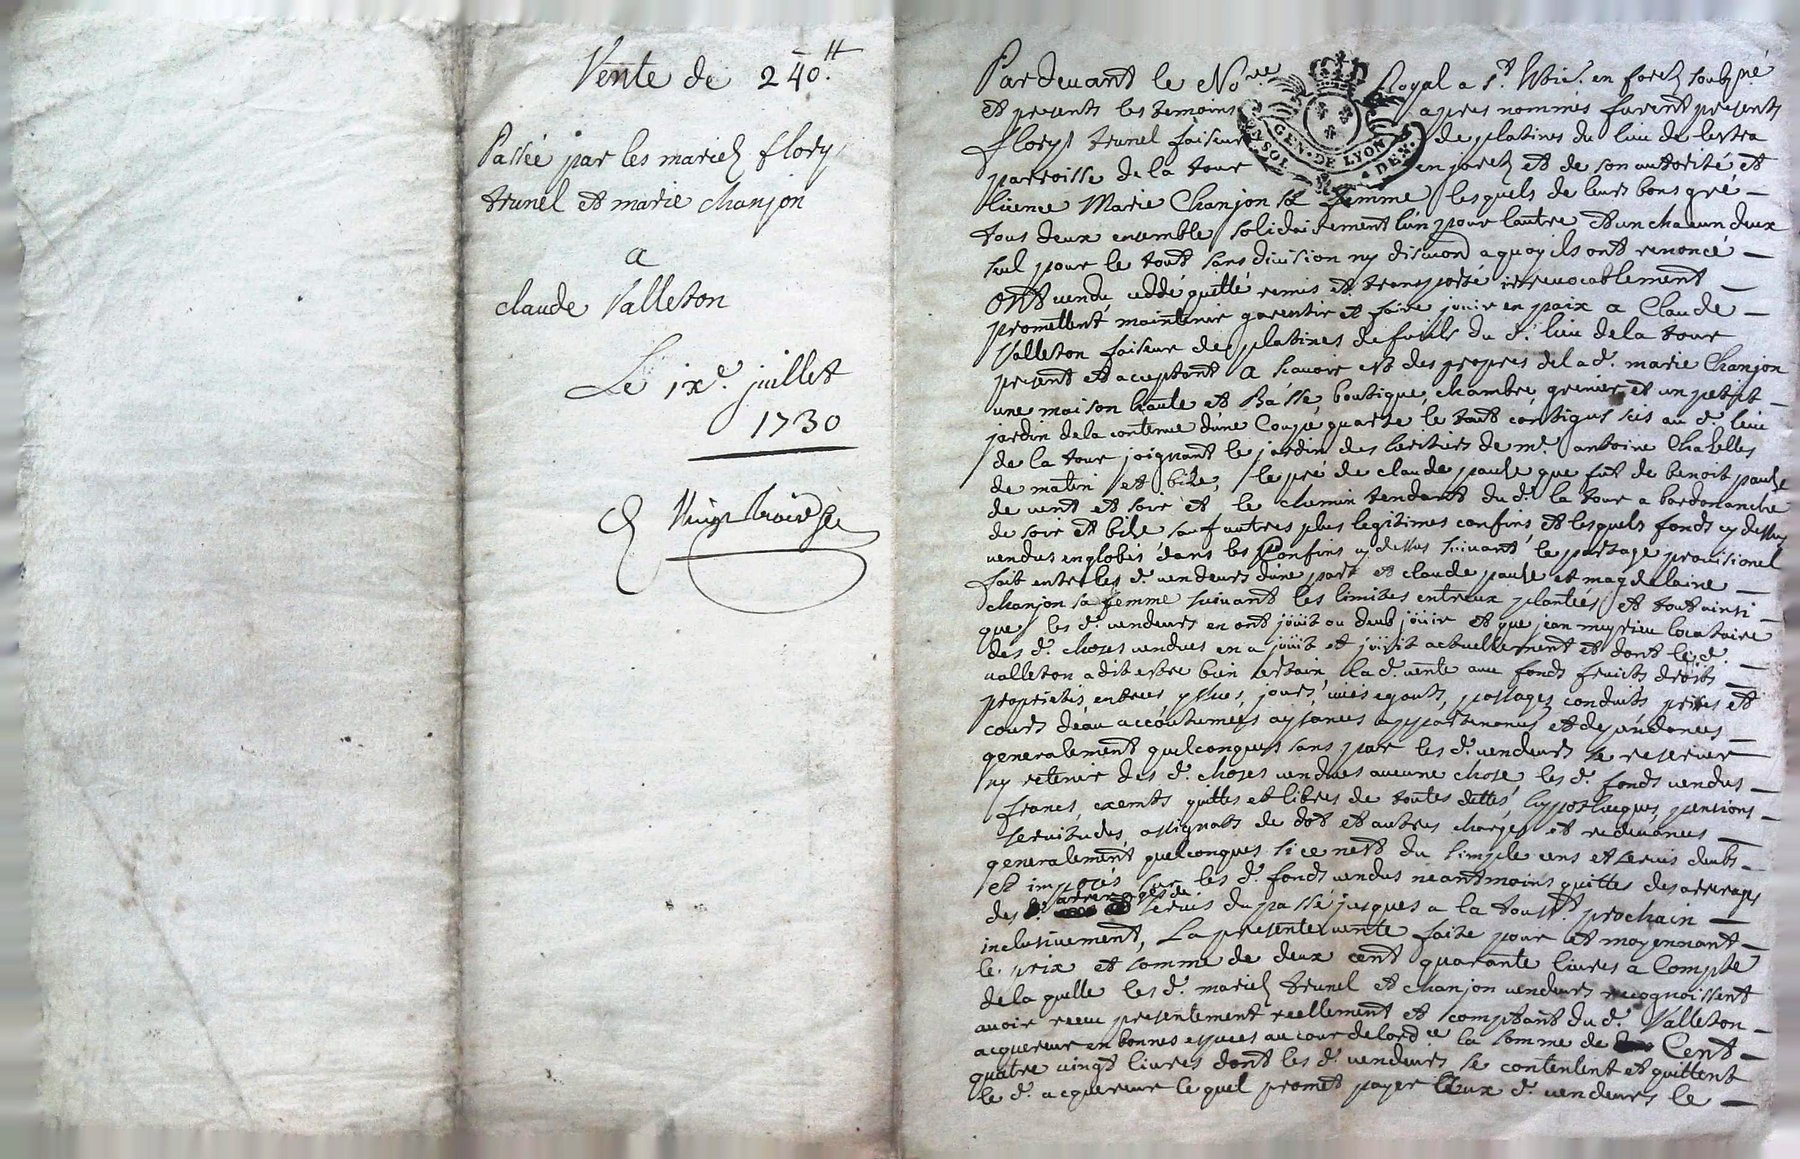 Vente de 240.ᴴ
Passée par les mariez flory
trunel et marie chanjon
a
claude Valleton
Le ixe. juillet
1730
Pardevant le Nore Royal a St. en forez soubzné
et presents les temoins apres nommés furent presents
flory trunel faiseur de platines du lieu de lestra
parroisse de la tour en jarez et de son autorité et
licence Marie Chanjon sa femme lesquels de leurs bons gré
tous deux ensemble solidairement l'un pour lautre et un chacun deux
seul pour le tout sans division ny discuon a quoy ils ont renoncé
ont vendu ceddé quitté remis et transporté irrevocablement
promettent maintenir garentir et faire jouir en paix a Claude
Valleton faiseur de platines de fusils du d. lieu de la tour
present et acceptant A scavoir est des propres de la d. marie Chanjon
une maison haute et Basse, boutique, chambre, grenier, et un petit
jardin de la contenue dune Coupe quarte le tout contigus sis au d. lieu
de la tour joignant le jardin des heritiers de me. antoine Chaselles
de matin et bize, le pré de claude paule que fut de benoit paule
de vent et soir et le chemin tendant du d. la tour a bardonanche
de soir et bize sauf autres plus legitimes confins et lesquels fonds cy dessus
vendus englobés dans les Confins cy dessus suivant le partage provisionel
fait entre les d. vendeurs d'une part et claude paule et magdelaine
chanjon sa femme suivant les limites entreux plantées et tout ainsi
que les d. vendeurs en ont jouit ou deub jouir et que jean locataire
des d. choses vendues en a jouit et jouit actuellement et dont le d.
valleton a dit estre bien certain, la d. vente avec fonds fruits droits
proprietés, entrées, yssues, jours, vues egouts, passages conduits prises et
cours deau accoutumées aysances appartenances et dependances
generalement quelconques sans par les d. vendeurs se reserver
ny retenir des d. choses vendues aucune chose, les d. fonds vendus
francs, exempts quittes et libres de toutes dettes, hypotheques, pensions
servitudes, assignats de dot et autres charges et redevances
generalement quelconques si ce nest du simple cens et servis deubs
et imposés sur les d. fonds vendus neantmoins quittes des arrerages
des arrerages de servis du passé jusques a la touts. prochain
inclusivement, La presente vente faite pour et moyennant
le prix et somme de deux cent quarante livres a Compte
de la quelle les d. mariez trunel et chanjon vendeurs recognoissent
avoir receu presentement reellement et comptant du d. Valleton
acquereur en bonnes especes au cour de lordce la somme de Cent
quatre vingt livres dont les d. vendeurs se contentent et quittent
le d. acquereur lequel promet payer aux d. vendeurs le
GEN. DE LYON